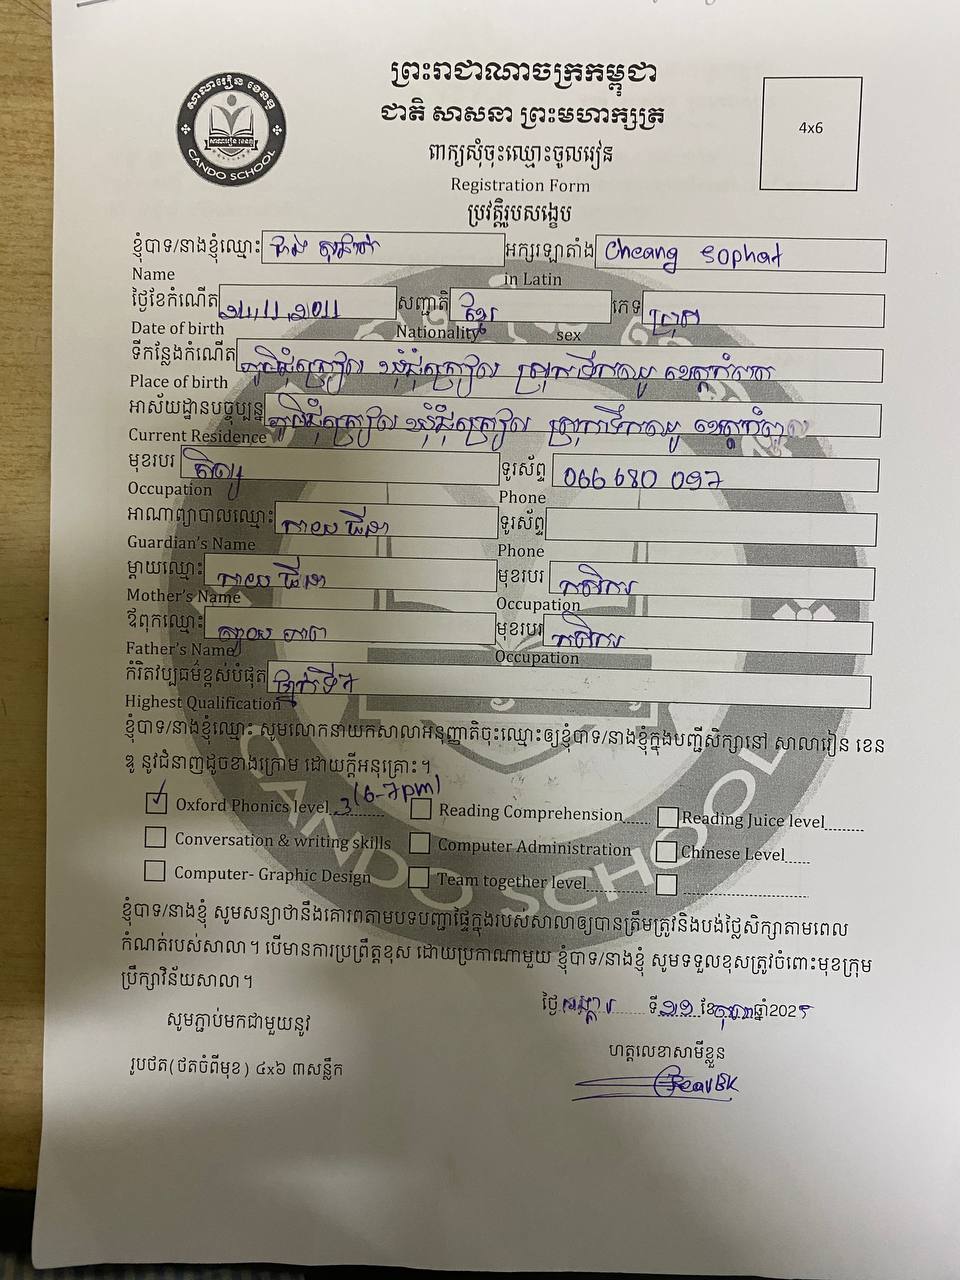 សាលារៀន ខេនដូ
CANDO SCHOOL
ព្រះរាជាណាចក្រកម្ពុជា
ជាតិ សាសនា ព្រះមហាក្សត្រ
4x6
ពាក្យសុំចុះឈ្មោះចូលរៀន
Registration Form
ប្រវត្តិរូបសង្ខេប
ខ្ញុំបាទ/នាងខ្ញុំឈ្មោះ អក្សរឡាតាំង Cheang Sophat
Name in Latin
ថ្ងៃខែកំណើត សញ្ជាតិ ខ្មែរ ភេទ ប្រុស
Date of birth Nationality sex
ទីកន្លែងកំណើត
Place of birth
អាស័យដ្ឋានបច្ចុប្បន្ន
Current Residence
មុខរបរ សិស្ស ទូរស័ព្ទ 066 680 097
Occupation Phone
អាណាព្យាបាលឈ្មោះ ទូរស័ព្ទ
Guardian's Name Phone
ម្តាយឈ្មោះ មុខរបរ កសិករ
Mother's Name Occupation
ឪពុកឈ្មោះ មុខរបរ កសិករ
Father's Name Occupation
កំរិតវប្បធម៌ខ្ពស់បំផុត ថ្នាក់ទី7
Highest Qualification
ខ្ញុំបាទ/នាងខ្ញុំឈ្មោះ សូមលោកនាយកសាលាអនុញ្ញាតិចុះឈ្មោះឲ្យខ្ញុំបាទ/នាងខ្ញុំក្នុងបញ្ជីសិក្សានៅ សាលារៀន ខេន
ឌូ នូវជំនាញដូចខាងក្រោម ដោយក្តីអនុគ្រោះ។
✓ Oxford Phonics level 3 (6-7pm) Reading Comprehension...... Reading Juice level........
Conversation & writing skills Computer Administration Chinese Level.....
Computer- Graphic Design Team together level............
ខ្ញុំបាទ/នាងខ្ញុំ សូមសន្យាថានឹងគោរពតាមបទបញ្ជាផ្ទៃក្នុងរបស់សាលាឲ្យបានត្រឹមត្រូវនិងបង់ថ្លៃសិក្សាតាមពេល
កំណត់របស់សាលា។ បើមានការប្រព្រឹត្តខុស ដោយប្រកាណាមួយ ខ្ញុំបាទ/នាងខ្ញុំ សូមទទួលខុសត្រូវចំពោះមុខក្រុម
ប្រឹក្សាវិន័យសាលា។
ថ្ងៃ អង្គារ ទី ខែ ឆ្នាំ2025
សូមភ្ជាប់មកជាមួយនូវ
ហត្ថលេខាសាមីខ្លួន
រូបថត(ថតចំពីមុខ) ៤x៦ ៣សន្លឹក